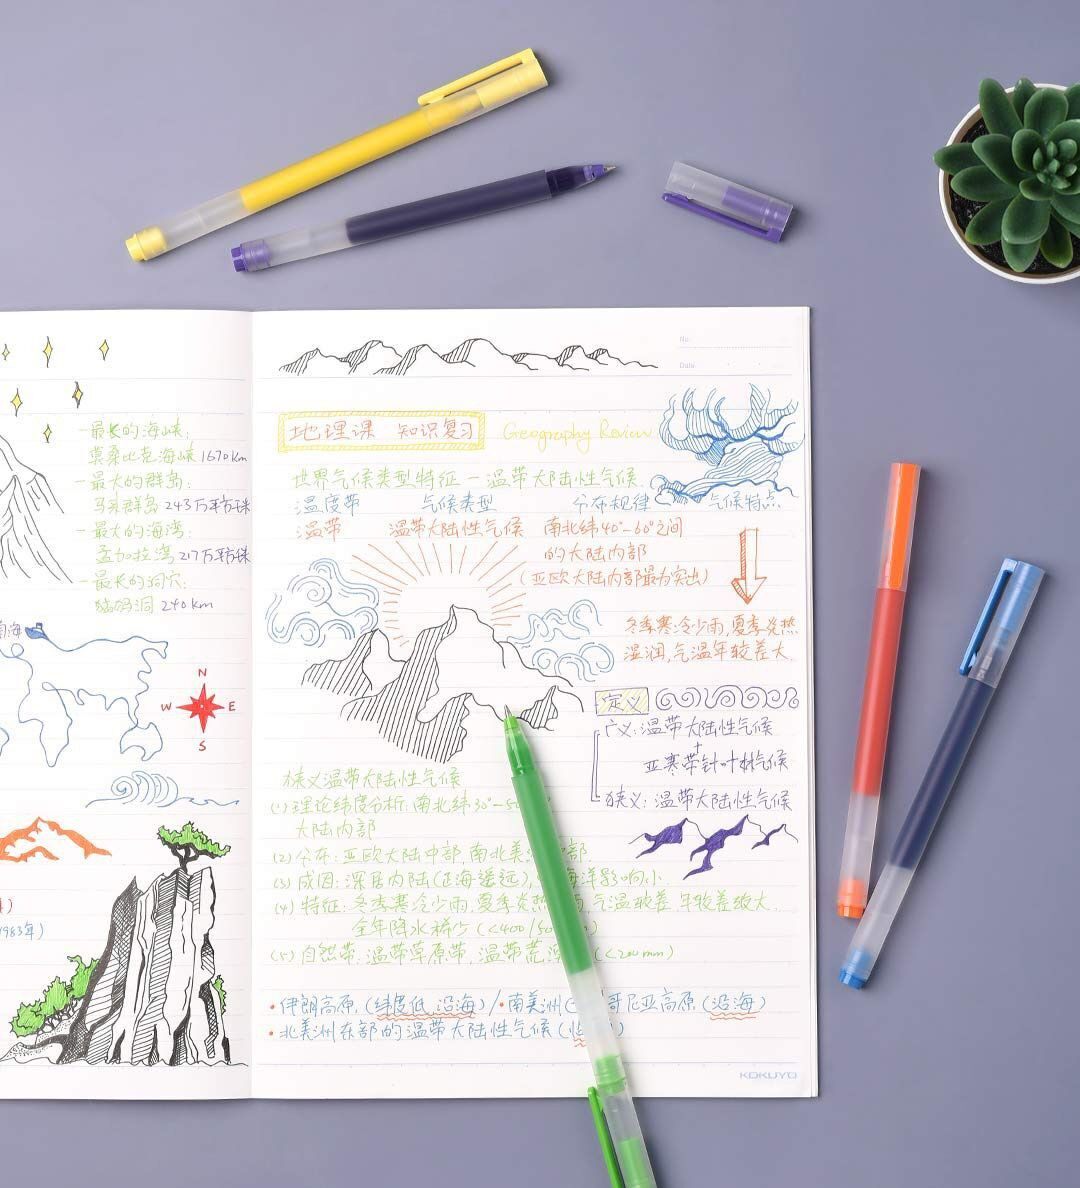 -最长的海峡:
莫桑比克海峡1670km
-最大的群岛:
马来群岛 243万平方km
-最大的海湾:
孟加拉湾 217万平方km
-最长的洞穴:
猛犸洞 240km
海
N
W E
S
1983年)
No.
Date
地理课 知识复习 Geography Review
世界气候类型特征-温带大陆性气候
温度带 气候类型 分布规律 气候特点
温带 温带大陆性气候 南北纬40°-60°之间
的大陆内部
(亚欧大陆内部最为突出)
冬季寒冷少雨,夏季炎热
湿润,气温年较差大.
定义
广义:温带大陆性气候
+
亚寒带针叶林气候
狭义:温带大陆性气候
狭义温带大陆性气候
(1)理论纬度分析:南北纬30°-
大陆内部
(2)分布:亚欧大陆中部,南北美 部.
(3)成因:深居内陆(距海遥远), 海洋影响小
(4)特征:冬季寒冷少雨,夏季炎热 雨,气温较差 年较差较大.
全年降水稀少(<400/50 )
(5)自然带:温带草原带,温带荒 (<200mm)
•伊朗高原(纬度低,沿海)/•南美洲( 哥尼亚高原(沿海)
•北美洲东部的温带大陆性气候( )
KOKUYO